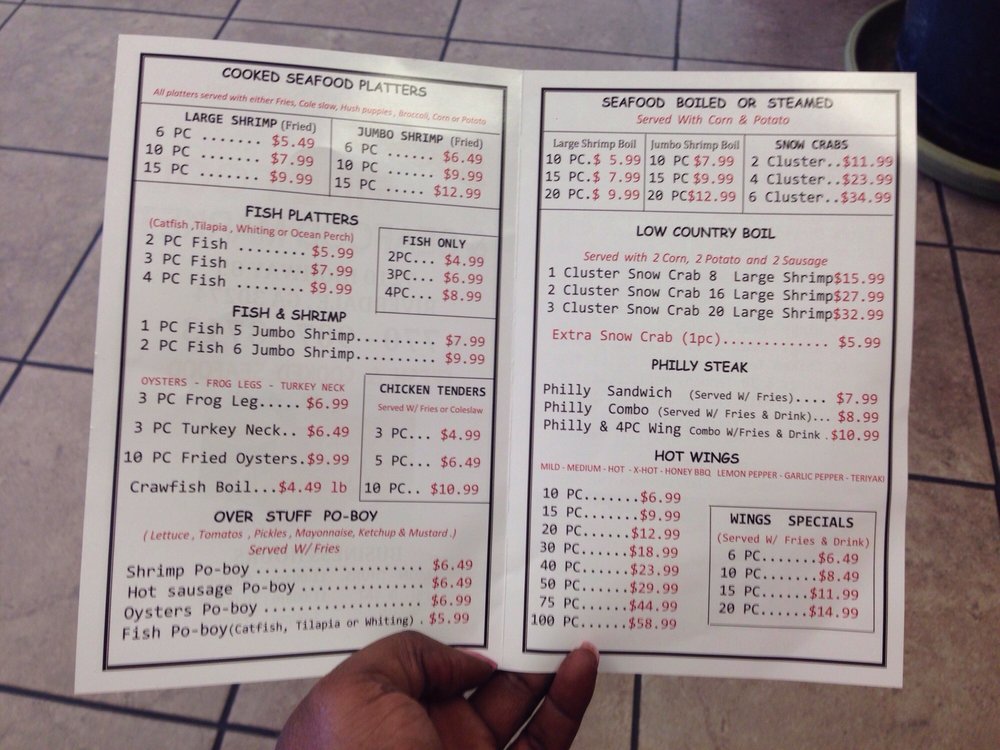 COOKED SEAFOOD PLATTERS
All platters served with either Fries, Cole slaw, Hush puppies, Broccoli, Corn or Potato
LARGE SHRIMP (Fried)
6 PC ....... $5.49
10 PC ...... $7.99
15 PC ...... $9.99
JUMBO SHRIMP (Fried)
6 PC ...... $6.49
10 PC ..... $9.99
15 PC ..... $12.99
FISH PLATTERS
(Catfish ,Tilapia , Whiting or Ocean Perch)
2 PC Fish ........ $5.99
3 PC Fish ........ $7.99
4 PC Fish ........ $9.99
FISH ONLY
2PC... $4.99
3PC... $6.99
4PC... $8.99
FISH & SHRIMP
1 PC Fish 5 Jumbo Shrimp.......... $7.99
2 PC Fish 6 Jumbo Shrimp.......... $9.99
OYSTERS - FROG LEGS - TURKEY NECK
3 PC Frog Leg..... $6.99
3 PC Turkey Neck.. $6.49
10 PC Fried Oysters.$9.99
Crawfish Boil...$4.49 lb
CHICKEN TENDERS
Served W/ Fries or Coleslaw
3 PC... $4.99
5 PC... $6.49
10 PC.. $10.99
OVER STUFF PO-BOY
( Lettuce , Tomatos , Pickles , Mayonnaise, Ketchup & Mustard .)
Served W/ Fries
Shrimp Po-boy ...................... $6.49
Hot sausage Po-boy ................ $6.49
Oysters Po-boy .................... $6.99
Fish Po-boy(Catfish, Tilapia or Whiting) . $5.99
SEAFOOD BOILED OR STEAMED
Served With Corn & Potato
Large Shrimp Boil
10 PC.$ 5.99
15 PC.$ 7.99
20 PC.$ 9.99
Jumbo Shrimp Boil
10 PC $7.99
15 PC $9.99
20 PC$12.99
SNOW CRABS
2 Cluster..$11.99
4 Cluster..$23.99
6 Cluster..$34.99
LOW COUNTRY BOIL
Served with 2 Corn, 2 Potato and 2 Sausage
1 Cluster Snow Crab 8 Large Shrimp$15.99
2 Cluster Snow Crab 16 Large Shrimp$27.99
3 Cluster Snow Crab 20 Large Shrimp$32.99
Extra Snow Crab (1pc)............. $5.99
PHILLY STEAK
Philly Sandwich (Served W/ Fries).... $7.99
Philly Combo (Served W/ Fries & Drink)... $8.99
Philly & 4PC Wing Combo W/Fries & Drink . $10.99
HOT WINGS
MILD - MEDIUM - HOT - X-HOT - HONEY BBQ LEMON PEPPER - GARLIC PEPPER - TERIYAKI
10 PC.......$6.99
15 PC.......$9.99
20 PC......$12.99
30 PC......$18.99
40 PC......$23.99
50 PC......$29.99
75 PC......$44.99
100 PC......$58.99
WINGS SPECIALS
(Served W/ Fries & Drink)
6 PC......$6.49
10 PC......$8.49
15 PC.....$11.99
20 PC.....$14.99